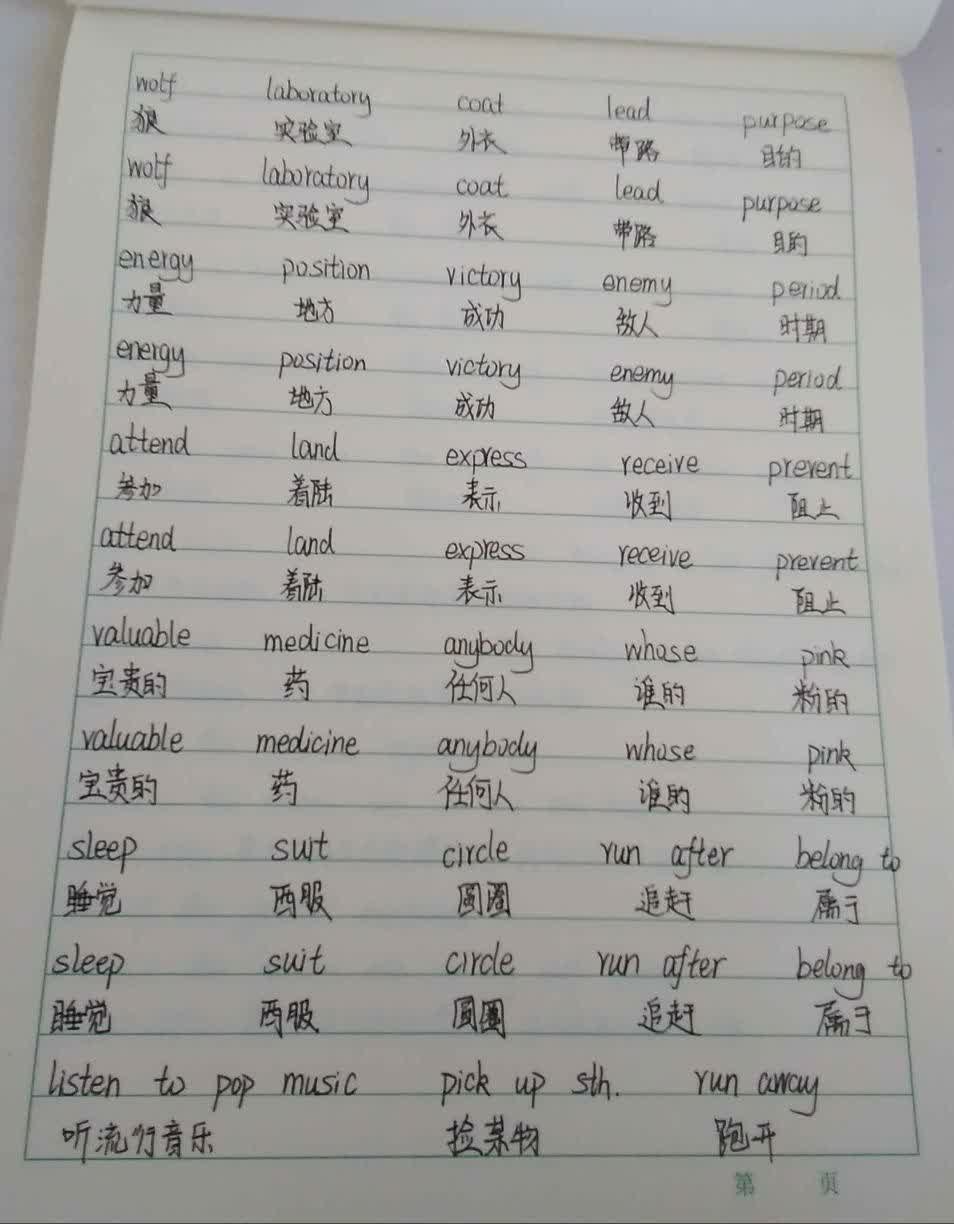 wolf laboratory coat lead purpose
狼 实验室 外衣 带路 目的
wolf laboratory coat lead purpose
狼 实验室 外衣 带路 目的
energy position victory enemy period
力量 地方 成功 敌人 时期
energy position victory enemy period
力量 地方 成功 敌人 时期
attend land express receive prevent
参加 着陆 表示 收到 阻止
attend land express receive prevent
参加 着陆 表示 收到 阻止
valuable medicine anybody whose pink
宝贵的 药 任何人 谁的 粉的
valuable medicine anybody whose pink
宝贵的 药 任何人 谁的 粉的
sleep suit circle run after belong to
睡觉 西服 圆圈 追赶 属于
sleep suit circle run after belong to
睡觉 西服 圆圈 追赶 属于
listen to pop music pick up sth. run away
听流行音乐 捡某物 跑开
第 页